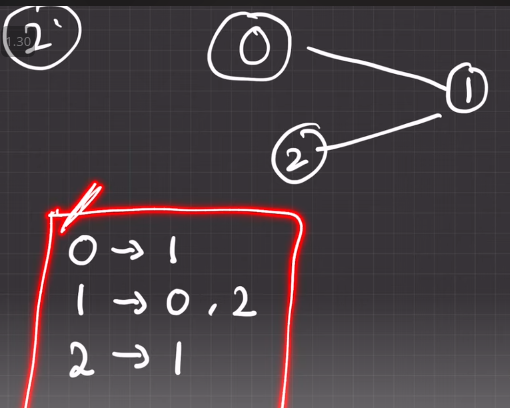 2
1.30
0
1
2
0 → 1
1 → 0, 2
2 → 1